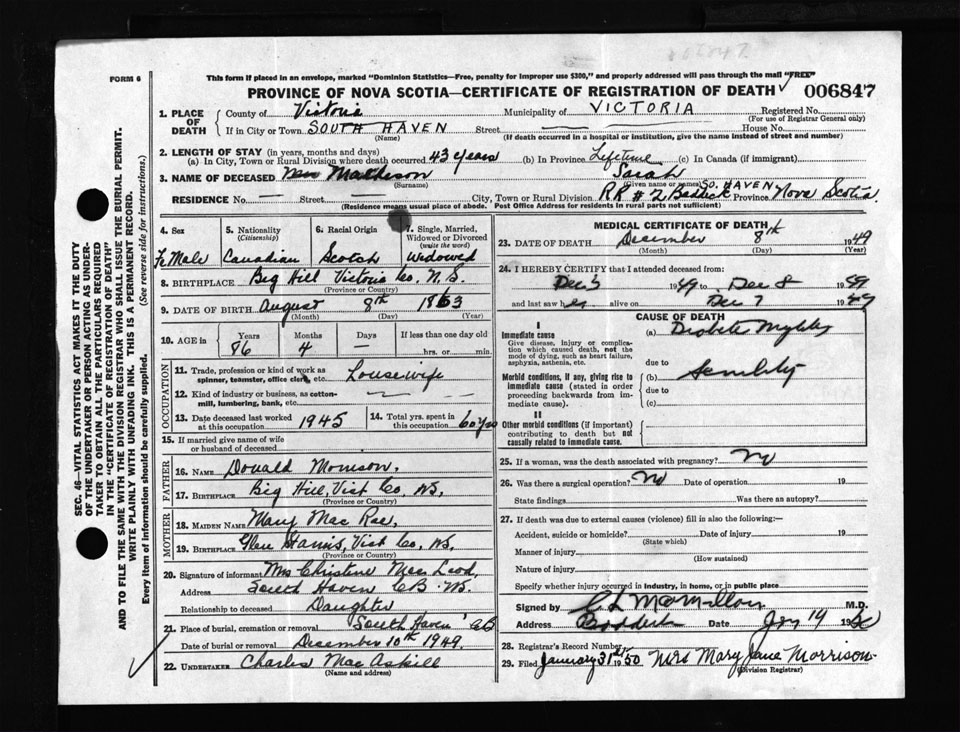 FORM 6
This form if placed in an envelope, marked "Dominion Statistics—Free, penalty for improper use $300," and properly addressed will pass through the mail "FREE"
PROVINCE OF NOVA SCOTIA—CERTIFICATE OF REGISTRATION OF DEATH 006847
1. PLACE OF DEATH County of Victoria Municipality of VICTORIA Registered No.
(For use of Registrar General only)
If in City or Town SOUTH HAVEN Street — House No.
(Name) (If death occurred in a hospital or institution, give the name instead of street and number)
2. LENGTH OF STAY (in years, months and days)
(a) In City, Town or Rural Division where death occurred 43 years (b) In Province Lifetime (c) In Canada (if immigrant)
3. NAME OF DECEASED Matheson Sarah
(Surname) (Given name or names)
RESIDENCE No. — Street — City, Town or Rural Division RR #2 Baddeck SO. HAVEN Province Nova Scotia
(Residence means usual place of abode. Post Office Address for residents in rural parts not sufficient)
4. Sex 5. Nationality (Citizenship) 6. Racial Origin 7. Single, Married, Widowed or Divorced (write the word)
Female Canadian Scotch Widowed
8. BIRTHPLACE Big Hill Victoria Co. N.S.
(Province or Country)
9. DATE OF BIRTH August 8th 1863
(Month) (Day) (Year)
10. AGE in Years Months Days If less than one day old
86 4 — hrs. or min.
OCCUPATION
11. Trade, profession or kind of work as spinner, teamster, office clerk, etc. Housewife
12. Kind of industry or business, as cotton-mill, lumbering, bank, etc. — — —
13. Date deceased last worked at this occupation 1945 14. Total yrs. spent in this occupation 60 yrs
15. If married give name of wife or husband of deceased
FATHER
16. NAME Donald Morrison.
17. BIRTHPLACE Big Hill, Vict Co, NS.
(Province or Country)
MOTHER
18. MAIDEN NAME Mary Mac Rae,
19. BIRTHPLACE Vict Co, NS.
(Province or Country)
20. Signature of informant Mrs Christene Mac Leod,
Address South Haven CB NS.
Relationship to deceased Daughter
21. Place of burial, cremation or removal South Haven CB
Date of burial or removal December 10th 1949.
22. UNDERTAKER Charles Mac Askill
(Name and address)
MEDICAL CERTIFICATE OF DEATH
23. DATE OF DEATH December 8th 1949
(Month) (Day) (Year)
24. I HEREBY CERTIFY that I attended deceased from:
Dec 3 1949 to Dec 8 1949
and last saw her alive on Dec 7 1949
CAUSE OF DEATH
I
Immediate cause
Give disease, injury or complication which caused death, not the mode of dying, such as heart failure, asphyxia, asthenia, etc.
(a) Diabetes
due to
Morbid conditions, if any, giving rise to immediate cause (stated in order proceeding backwards from immediate cause).
(b) Senility
due to
(c)
II
Other morbid conditions (if important) contributing to death but not causally related to immediate cause.
25. If a woman, was the death associated with pregnancy? No
26. Was there a surgical operation? No Date of operation 19
State findings Was there an autopsy?
27. If death was due to external causes (violence) fill in also the following:—
Accident, suicide or homicide? Date of injury 19
(State which)
Manner of injury
(How sustained)
Nature of injury
Specify whether injury occurred in industry, in home, or in public place
Signed by C L McMillan M.D.
Address Baddeck Date Jan 19
28. Registrar's Record Number
29. Filed January 31st 1950 Mrs Mary Jane Morrison
(Division Registrar)
SEC. 46—VITAL STATISTICS ACT MAKES IT THE DUTY
OF THE UNDERTAKER OR PERSON ACTING AS UNDER-
TAKER TO OBTAIN ALL THE PARTICULARS REQUIRED
IN THE "CERTIFICATE OF REGISTRATION OF DEATH"
AND TO FILE THE SAME WITH THE DIVISION REGISTRAR WHO SHALL ISSUE THE BURIAL PERMIT.
WRITE PLAINLY WITH UNFADING INK. THIS IS A PERMANENT RECORD.
Every item of information should be carefully supplied. (See reverse side for instructions.)